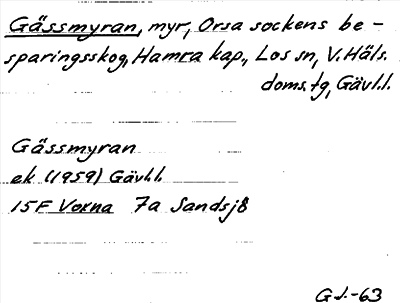 Gässmyran, myr, Orsa sockens be-
sparingsskog, Hamra kap., Los sn, V. Häls.
doms.tg, Gävl.l.
Gässmyran
ek (1959) Gävl.l.
15F Voxna 7a Sandsjö
G.J.-63